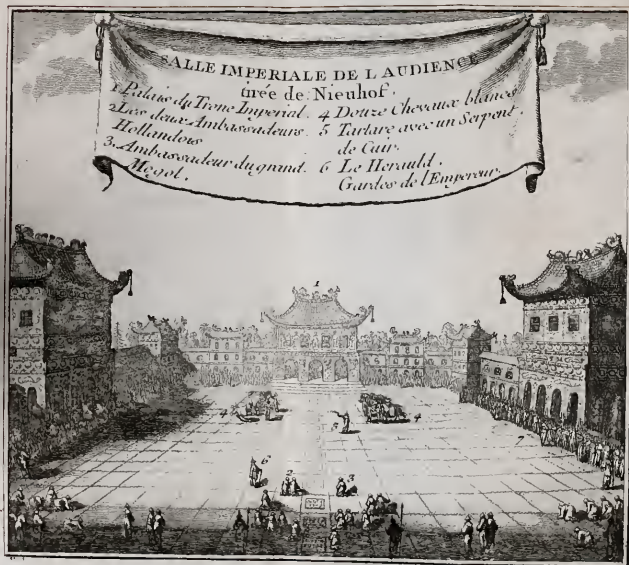 SALLE IMPERIALE DE L AUDIENCE
tirée de Nieuhof.
1 Palais du Trone Imperial.
2 Les deux Ambassadeurs
Hollandois
3. Ambassadeur du grand
Mogol.
4 Douze Chevaux blancs
5 Tartare avec un Serpent
de Cuir.
6 Le Herauld.
Gardes de l'Empereur.
1
4
6
7